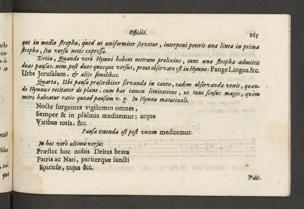 Officii. 265
qui in medio stropha, quod ut uniformiter servetur, interponi poterit una linea in prima
stropha, seu versu notis expresso.
Tertiò, Quando verò Hymni habent metrum prolixius, tunc una stropha admittit
duas pausas, nim. post duos quosque versus, prout observare est in Hymno: Pange Lingua &c.
Urbs Jerusalem, & aliis similibus.
Quartò, Ubi pausa præscribitur servanda in cantu, eadem observanda venit, quan-
do Hymnus recitatur de plano, cum hac tamen limitatione, ut tunc sensus magis, quàm
metri habeatur ratio quoad pausam v. g. in Hymno matutinali.
Nocte surgentes vigilemus omnes,
Semper & in psalmis meditemur; atque
Viribus totis, &c.
Pausa tenenda est post vocem meditemur.
In hoc verò ultimo versu:
Præstet hoc nobis Deitas beata
Patris ac Nati, pariterque sancti
Spiritûs, cujus &c.